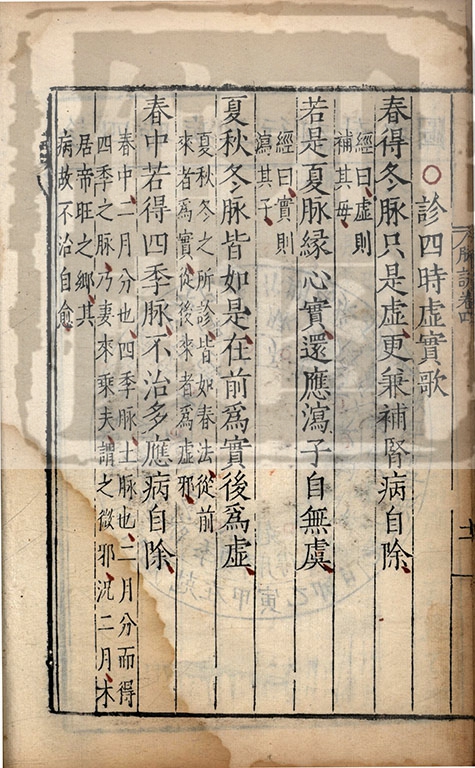 診四時虛實歌
春得冬脉只是虛更兼補腎病自除
經曰虛則
補其母
若是夏脉緣心實還應瀉子自無虞
經曰實則
瀉其子
夏秋冬脉皆如是在前爲實後爲虛
夏秋冬之所診皆如春法從前
來者爲實從後來者爲虛邪
春中若得四季脉不治多應病自除
春中二月分也四季脉土脉也二月分而得
四季之脉乃妻來乘夫謂之微邪况二月木
居帝旺之鄉其
病故不治自愈